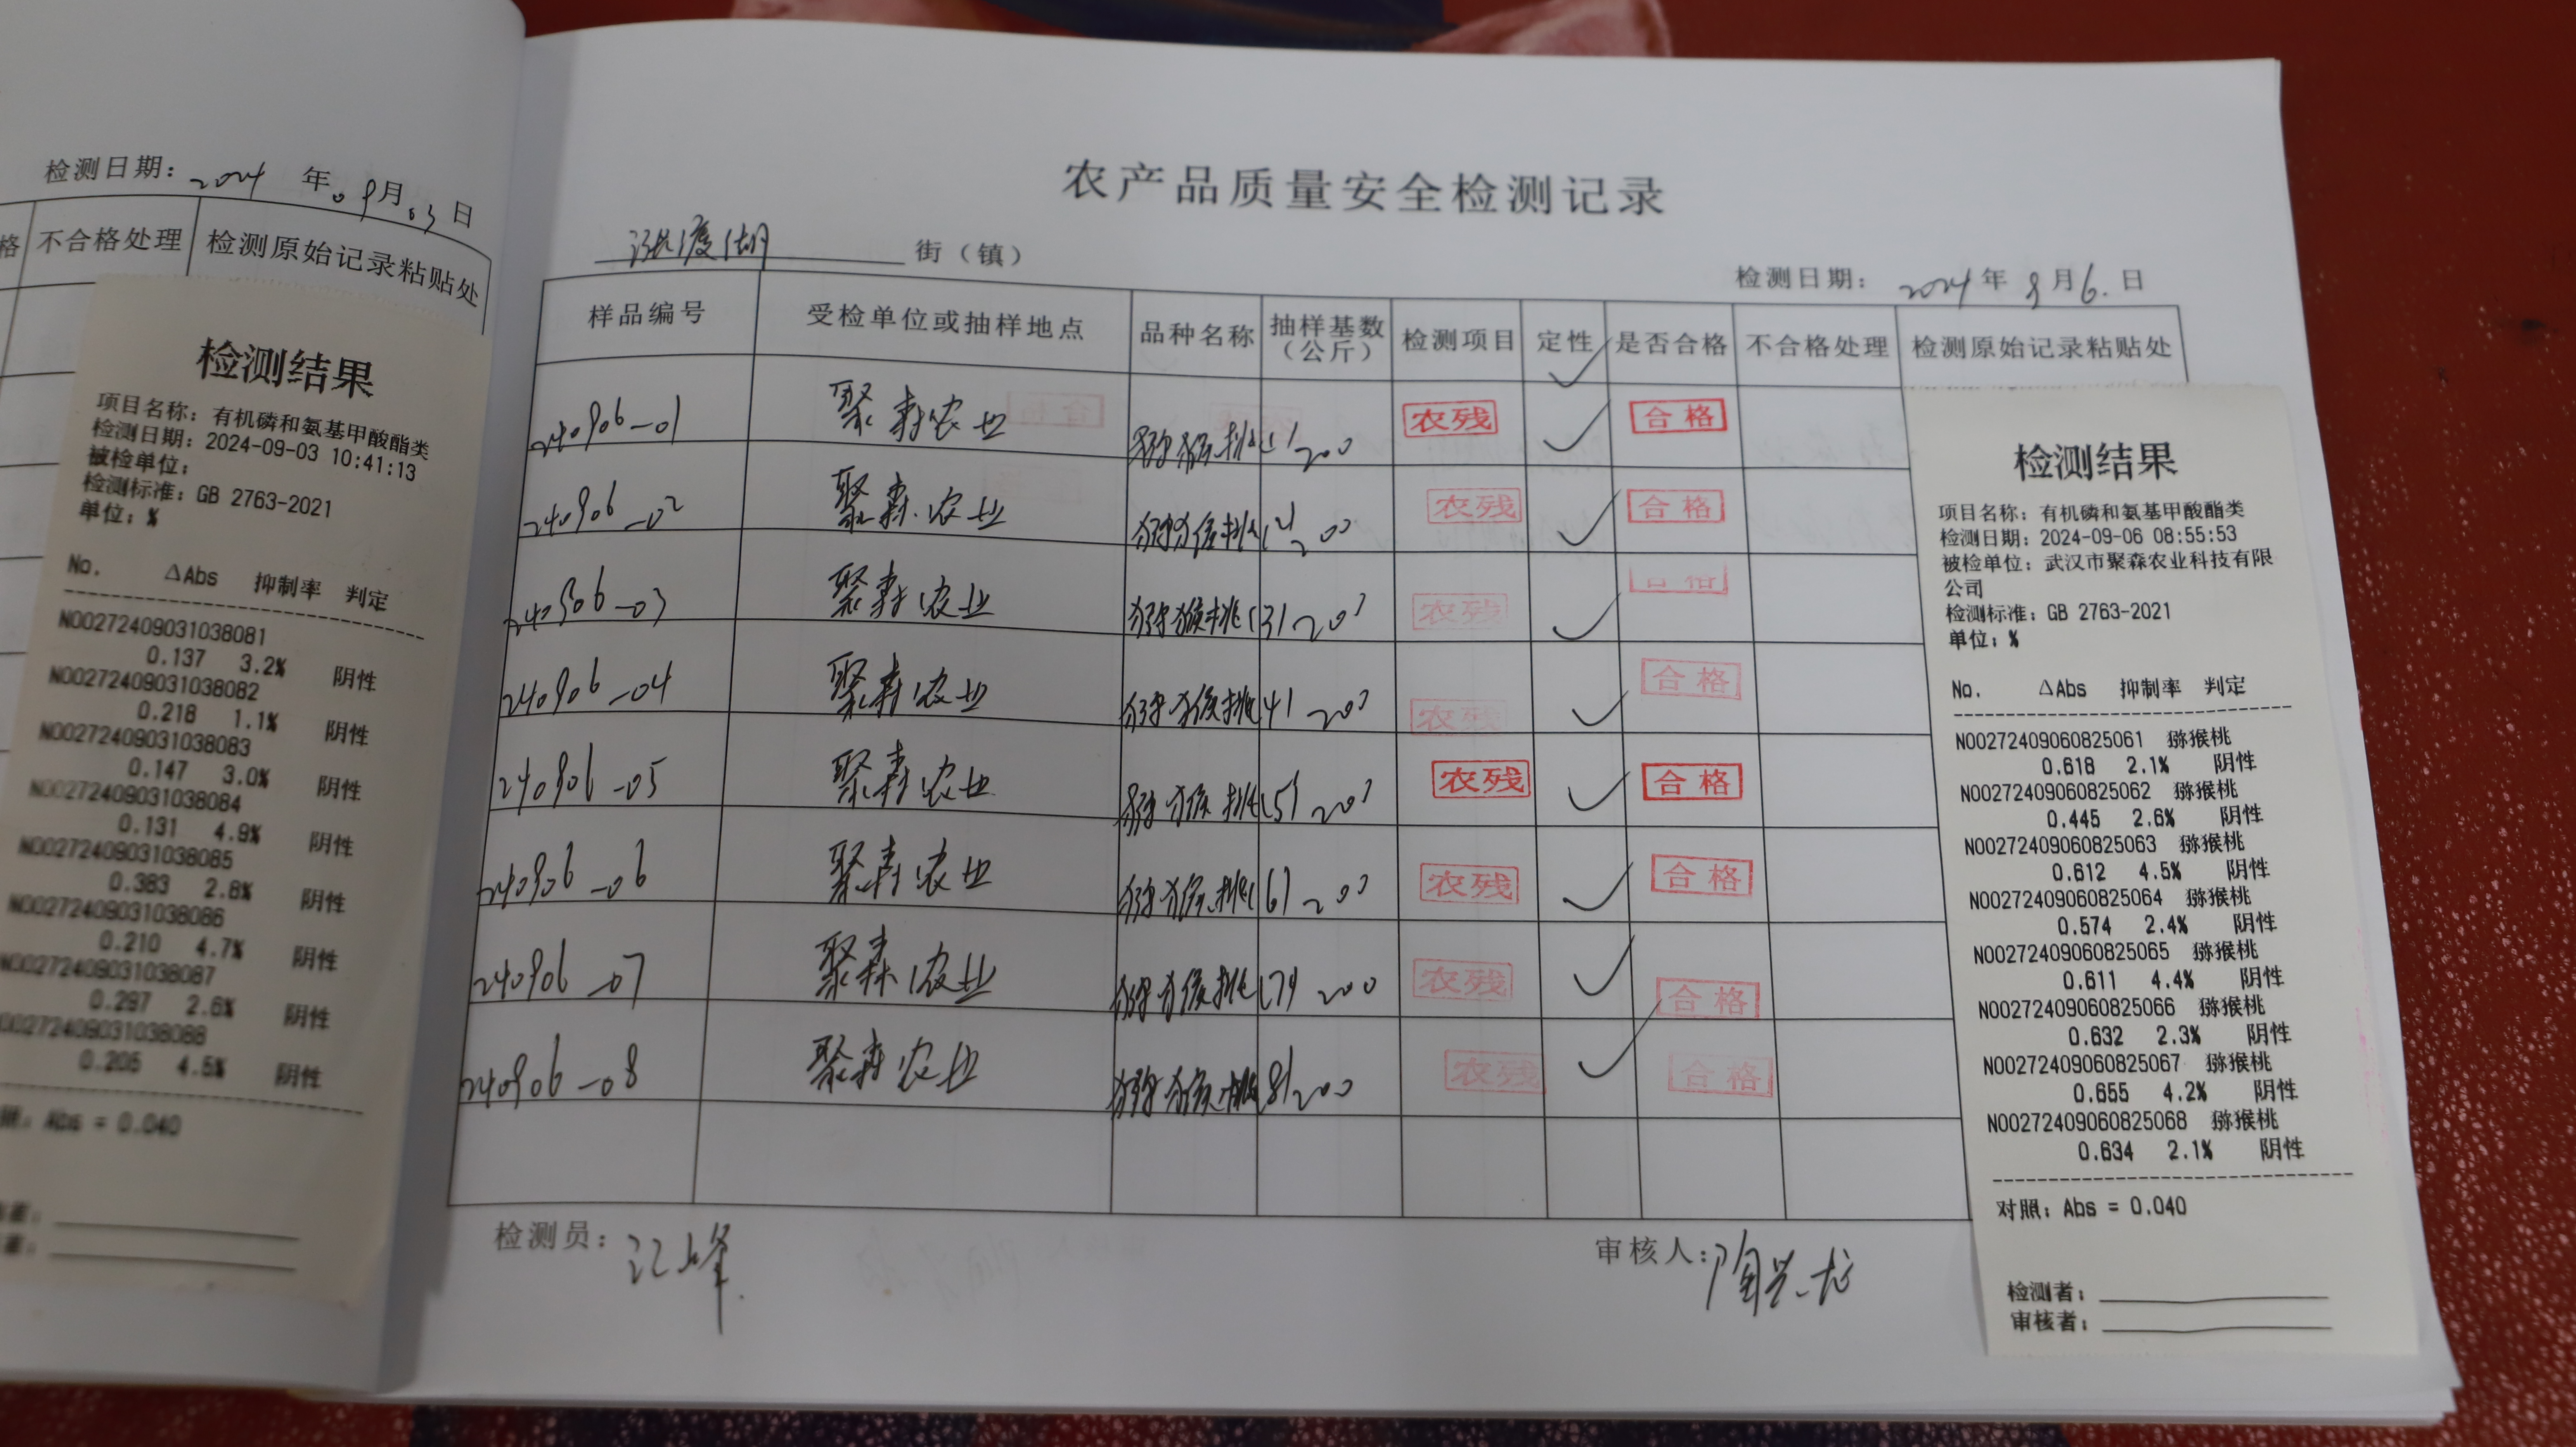 检测日期：2024年09月03日
格 不合格处理 检测原始记录粘贴处
检测结果
项目名称：有机磷和氨基甲酸酯类
检测日期：2024-09-03 10:41:13
被检单位：
检测标准：GB 2763-2021
单位：%
No. ΔAbs 抑制率 判定
N00272409031038081
0.137 3.2% 阴性
N00272409031038082
0.218 1.1% 阴性
N00272409031038083
0.147 3.0% 阴性
N00272409031038084
0.131 4.9% 阴性
N00272409031038085
0.383 2.8% 阴性
N00272409031038086
0.210 4.7% 阴性
N00272409031038087
0.297 2.6% 阴性
N00272409031038088
0.205 4.5% 阴性
照：Abs = 0.040
农产品质量安全检测记录
涨渡湖 街（镇）
检测日期：2024年9月6日
样品编号 受检单位或抽样地点 品种名称 抽样基数（公斤） 检测项目 定性 是否合格 不合格处理 检测原始记录粘贴处
240906-01 聚森农业 猕猴桃(1) 200 农残 ✓ 合格
240906-02 聚森农业 猕猴桃(2) 200 农残 ✓ 合格
240906-03 聚森农业 猕猴桃(3) 200 农残 ✓ 合格
240906-04 聚森农业 猕猴桃(4) 200 农残 ✓ 合格
240906-05 聚森农业 猕猴桃(5) 200 农残 ✓ 合格
240906-06 聚森农业 猕猴桃(6) 200 农残 ✓ 合格
240906-07 聚森农业 猕猴桃(7) 200 农残 ✓ 合格
240906-08 聚森农业 猕猴桃(8) 200 农残 ✓ 合格
检测员：江峰
审核人：陶兴龙
检测结果
项目名称：有机磷和氨基甲酸酯类
检测日期：2024-09-06 08:55:53
被检单位：武汉市聚森农业科技有限
公司
检测标准：GB 2763-2021
单位：%
No. ΔAbs 抑制率 判定
N00272409060825061 猕猴桃
0.618 2.1% 阴性
N00272409060825062 猕猴桃
0.445 2.6% 阴性
N00272409060825063 猕猴桃
0.612 4.5% 阴性
N00272409060825064 猕猴桃
0.574 2.4% 阴性
N00272409060825065 猕猴桃
0.611 4.4% 阴性
N00272409060825066 猕猴桃
0.632 2.3% 阴性
N00272409060825067 猕猴桃
0.655 4.2% 阴性
N00272409060825068 猕猴桃
0.634 2.1% 阴性
对照：Abs = 0.040
检测者：
审核者：